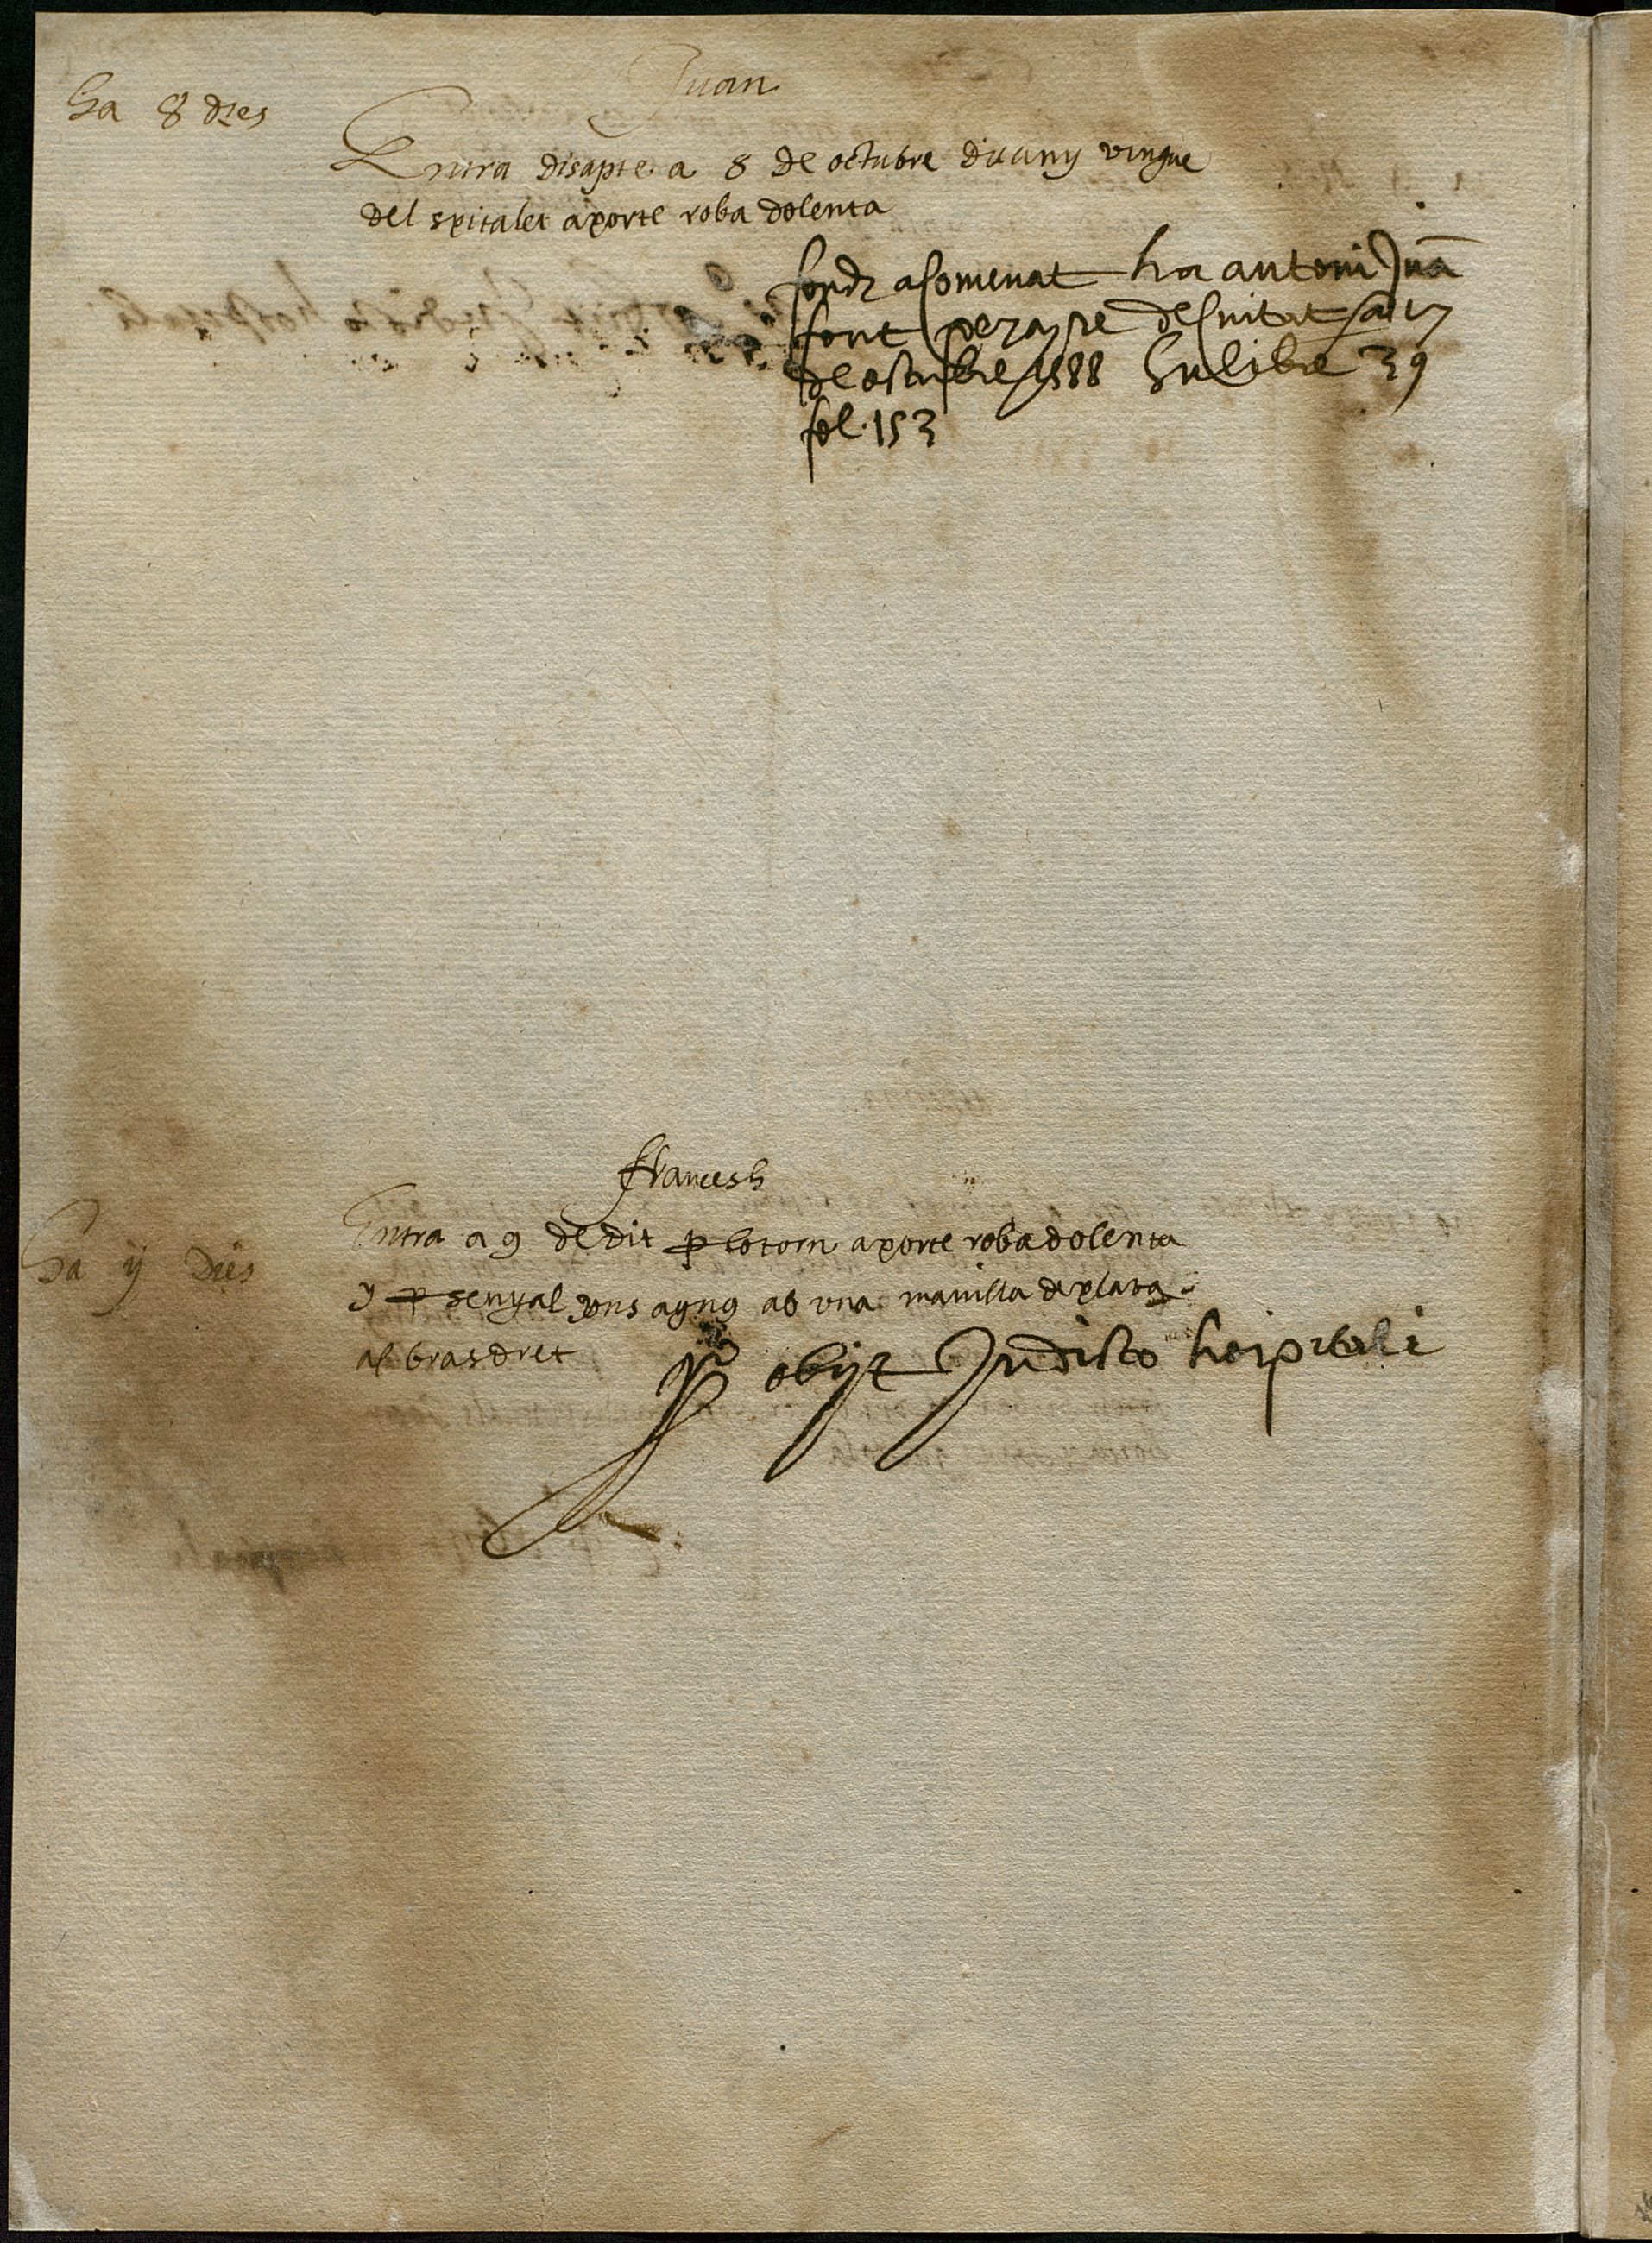 Juan
Ha 8 dies
Entra disapte a 8 de octubre dit any vingue
del spitalet aporte roba dolenta
fonch acomenat ha antoni Juã
font perayre de ciutat a 17
de octubre 1588 en libre 39
fol. 153
francesh
Entra a 9 de dit p lo torn aporte roba dolenta
Ha ij dies
y p senyal uns ayns ab una manilla de plata
al bras dret
obijt In dicto hospitali